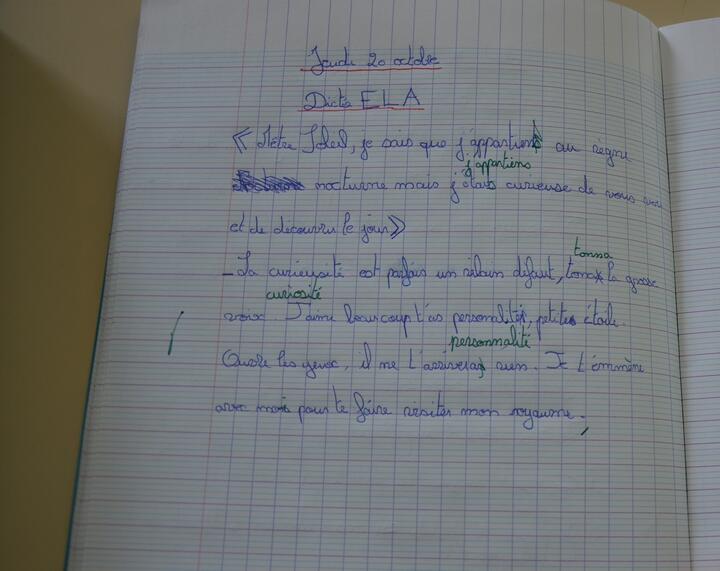 Jeudi 20 octobre
Dictée ELA
« Mètre Soleil, je sais que j'appartiens au règne
j'appartiens
nocturne mais j'étais curieuse de vous voir
et de découvrir le jour »
tonna
- La curieusité est parfois un vilain défaut, tona la grosse
curiosité
voix. J'aime beaucoup t'as personalité, petite étoile.
personnalité
Ouvre les yeux, il ne t'arrivera rien. Je t'émmène
avec moi pour te faire visiter mon royaume.